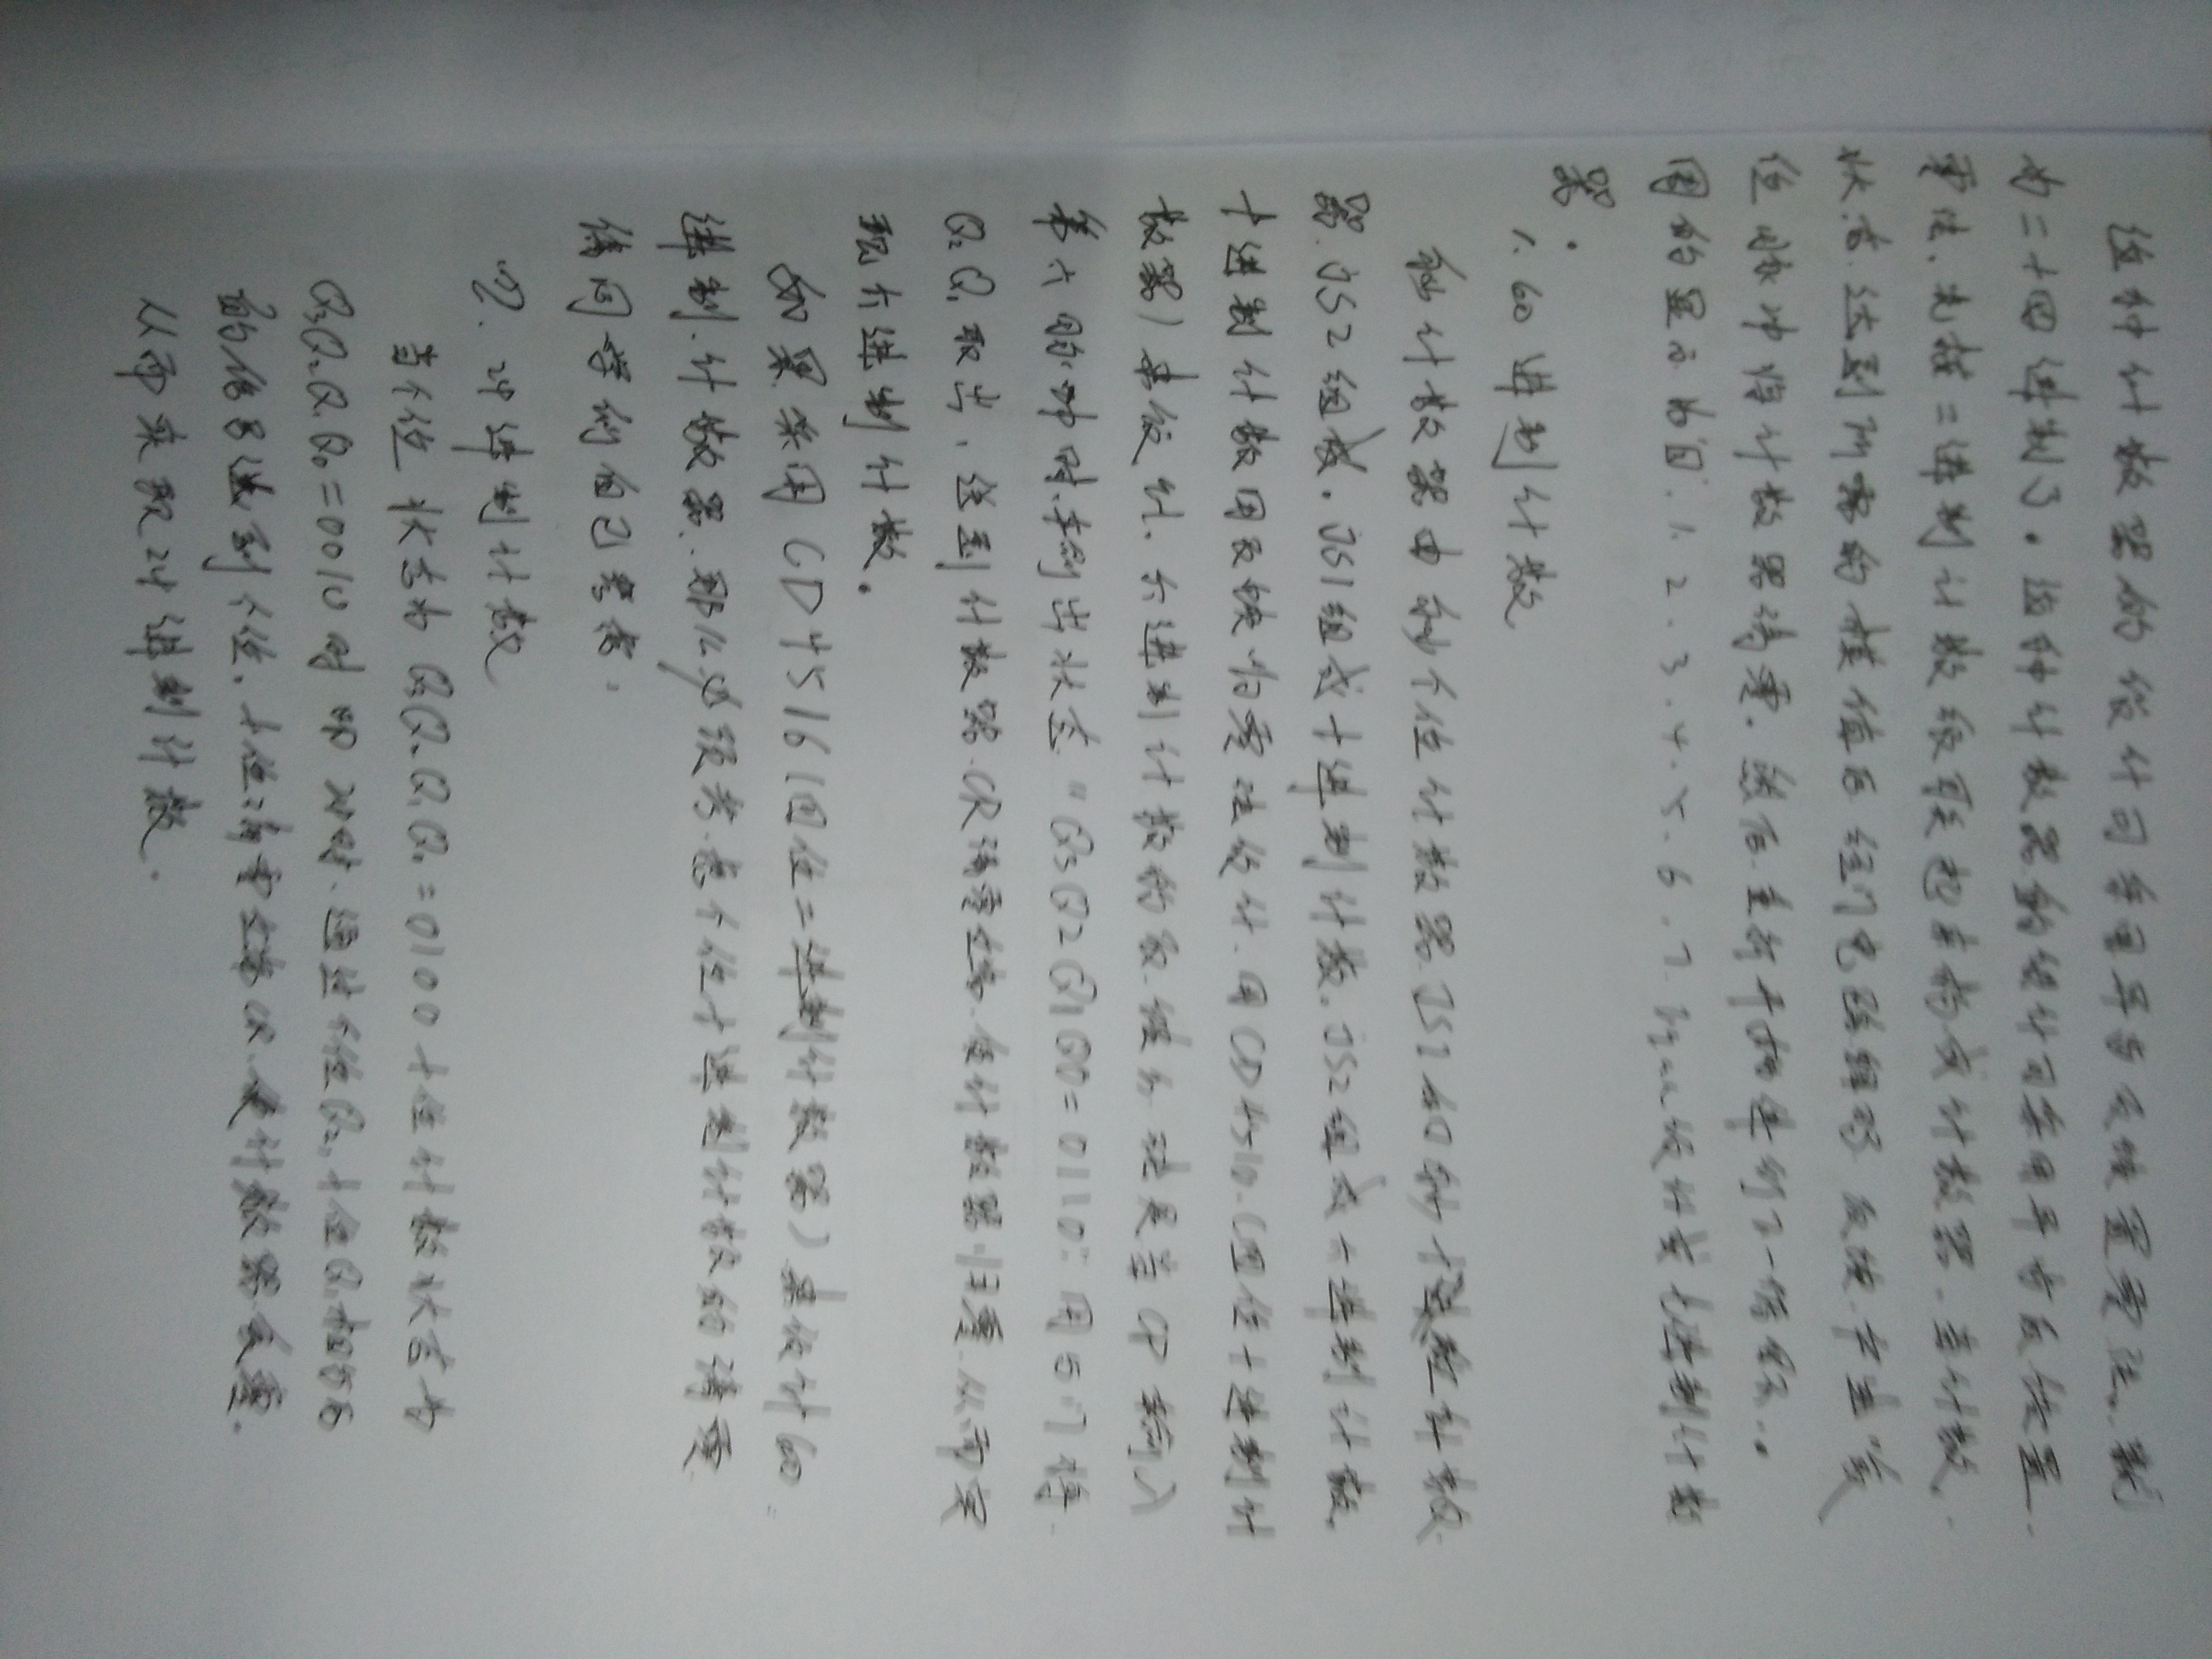 这种计数器的设计可采用异步反馈置零法。就
为二十四进制了。这种计数器的设计可采用异步反馈置
零法.先按二进制计数级联起来构成计数器.当计数
状态.达到所需的模值后经门电路译码.反馈.产生"复
位脉冲将计数器清零.然后.重新开始进行下一循环..
周的显示为日.1.2.3.4.5.6.7.设计成七进制计数
器.
1.60进制计数
秒计数器由秒个位计数器JS1和秒十进位计数
器.JS2组成.JS1组成十进制计数.JS2组成六进制计数.
十进制计数用反馈归零法设计.用CD4510.(四位十进制计
数器)来设计.六进制计数的反馈方法是当CP输入
第六脉冲时.输出状态"Q3Q2Q1Q0=0110"用与门将
Q2Q1取出,送到计数器.CR清零端.使计数器归零.从而实
现六进制计数.
如果采用CD4516(四位二进制计数器)来设计60
进制.计数器.那么必须考虑个位十进制计数的清零
请同学们自己考虑.
二.24进制计数
当个位状态为Q3Q2Q1Q0=0100十位计数状态为
Q3Q2Q1Q0=0010时即24时.通过个位Q2,十位Q1相与后
的信号送到个位.十位清零端CR.使计数器复零.
从而实现24进制计数.